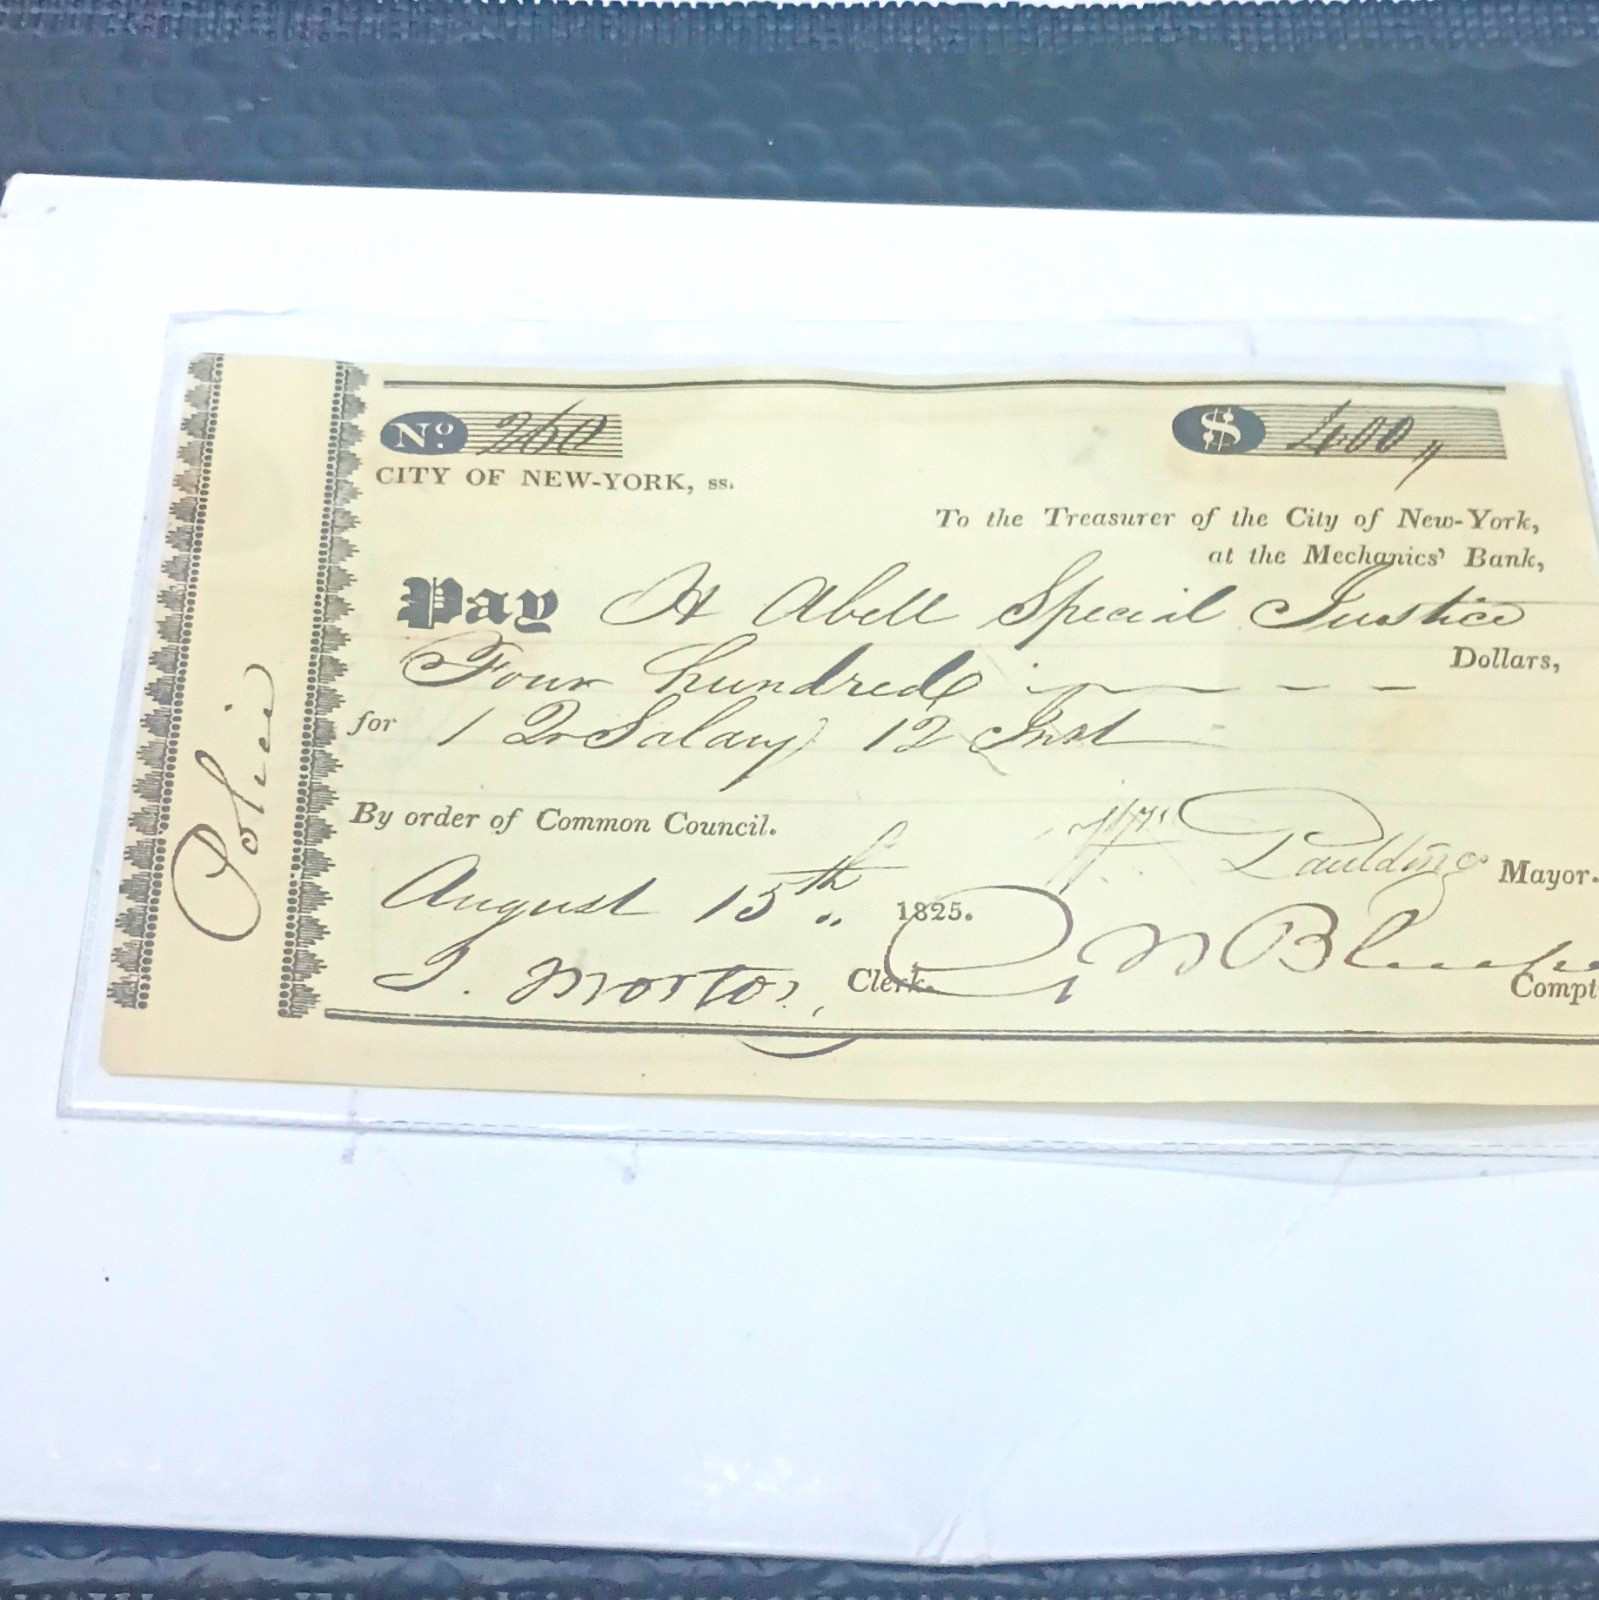 No. 260
$ 400,,
CITY OF NEW-YORK, ss.
To the Treasurer of the City of New-York,
at the Mechanics' Bank,
Pay H Abell Special Justice
Four hundred
Dollars,
for 1 Qr Salary 12 Inst
By order of Common Council.
Wm Paulding Mayor.
August 15th 1825.
J. Morton, Clerk.
Compt
Police